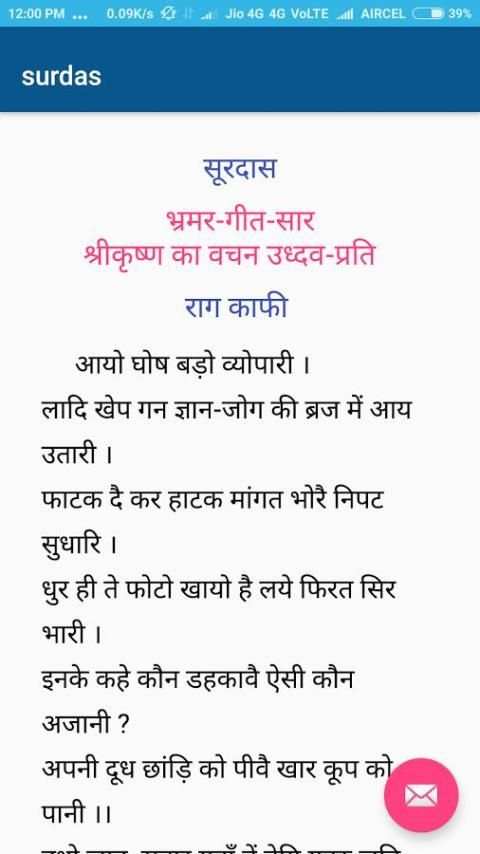 12:00 PM ... 0.09K/s Jio 4G 4G VoLTE AIRCEL 39%
surdas
सूरदास
भ्रमर-गीत-सार
श्रीकृष्ण का वचन उध्दव-प्रति
राग काफी
आयो घोष बड़ो व्योपारी ।
लादि खेप गन ज्ञान-जोग की ब्रज में आय
उतारी ।
फाटक दै कर हाटक मांगत भोरै निपट
सुधारि ।
धुर ही ते फोटो खायो है लये फिरत सिर
भारी ।
इनके कहे कौन डहकावै ऐसी कौन
अजानी ?
अपनी दूध छांड़ि को पीवै खार कूप को
पानी ।।